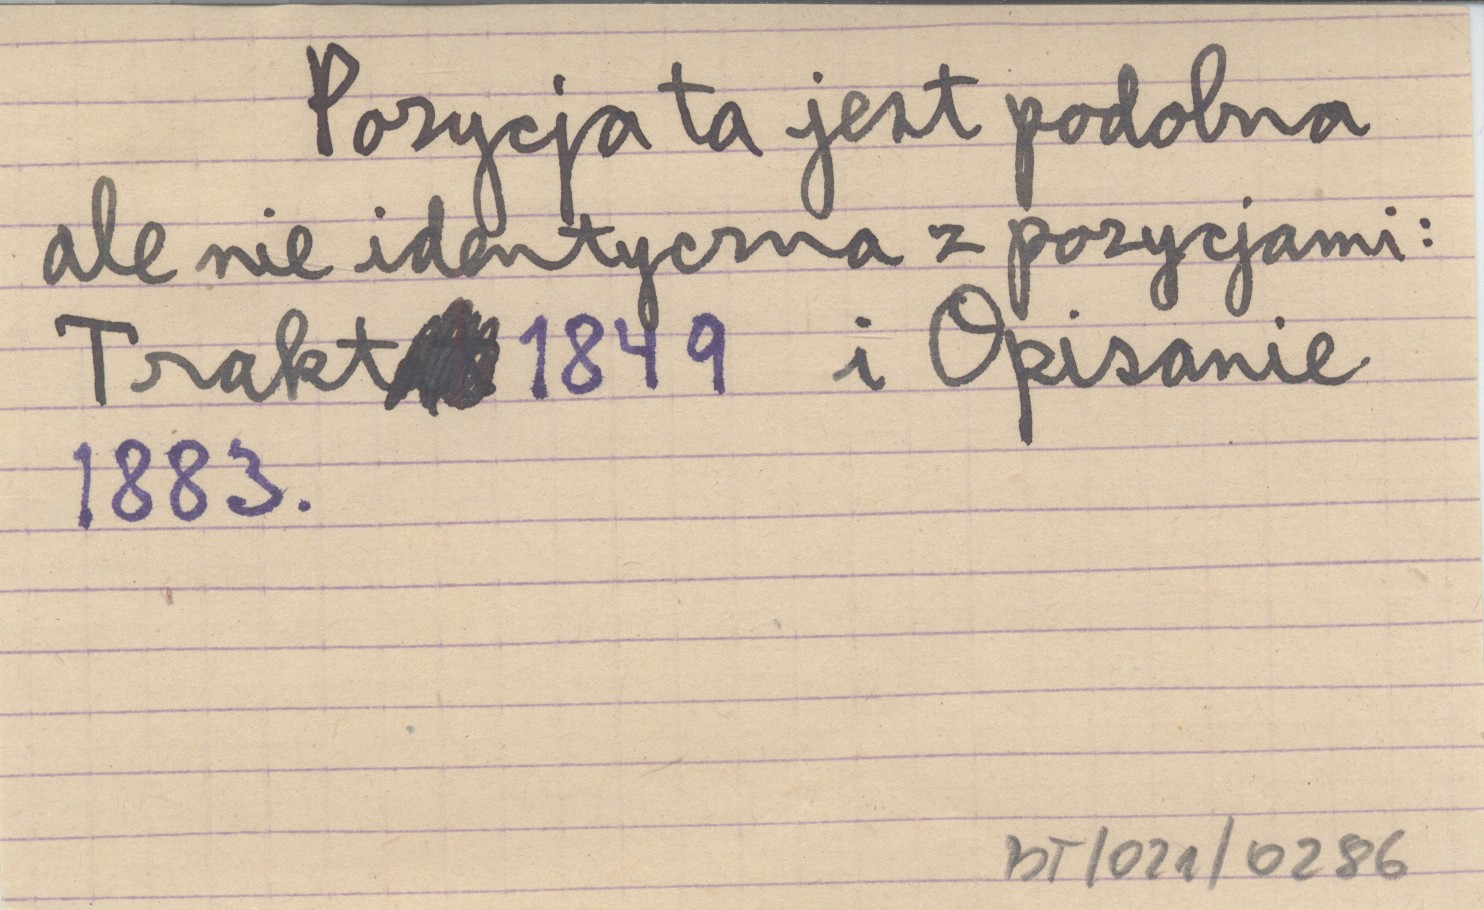 Pozycja ta jest podobna
ale nie identyczna z pozycjami:
Trakt 1849 i Opisanie
1883.
BT/021/0286